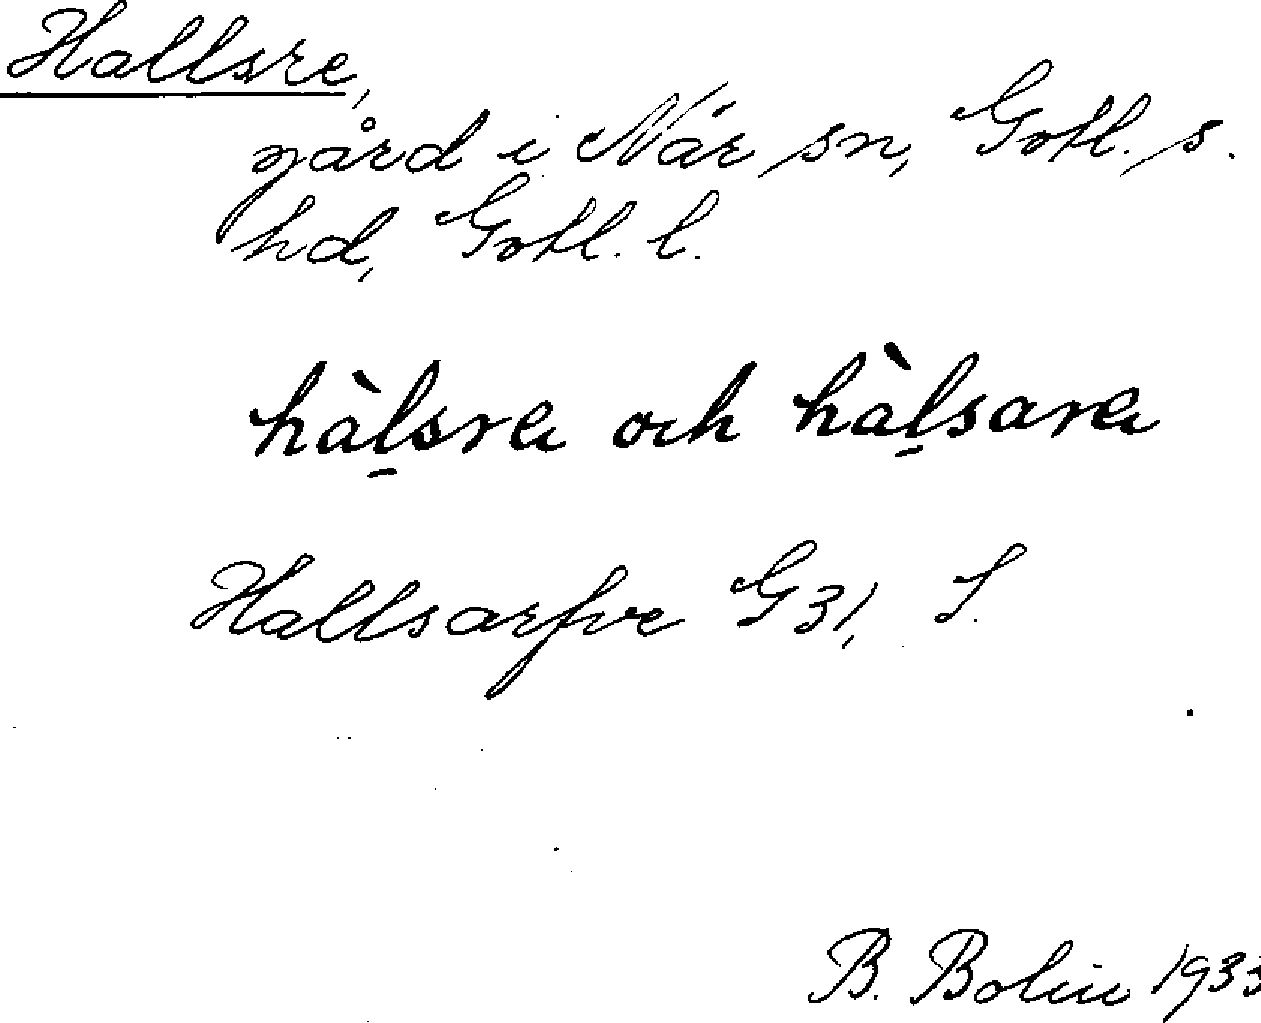 Hallsre,
gård i När sn, Gotl. s.
hd, Gotl. l.
hàl̠sre och hàl̠sare
Hallsarfve G31, S.
B. Bolin 1933